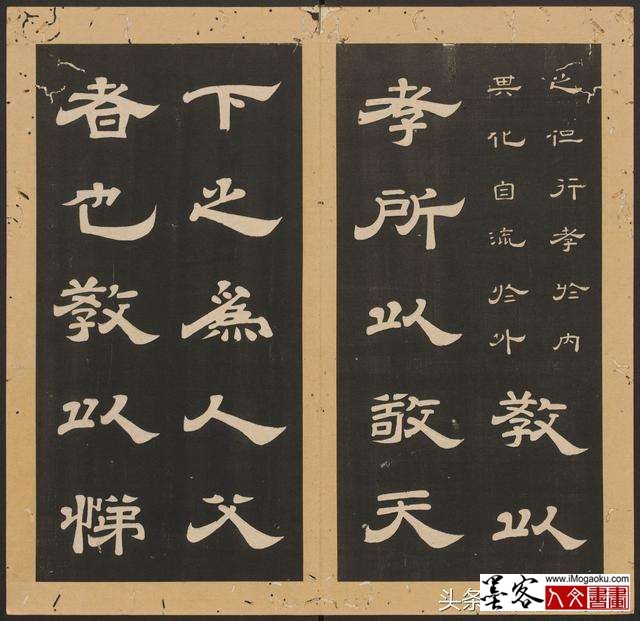 之但行孝於内
其化自流於外
教以
孝所以敬天
下之爲人父
者也教以悌
头条
墨客
www.iMogaoku.com
人文書畫